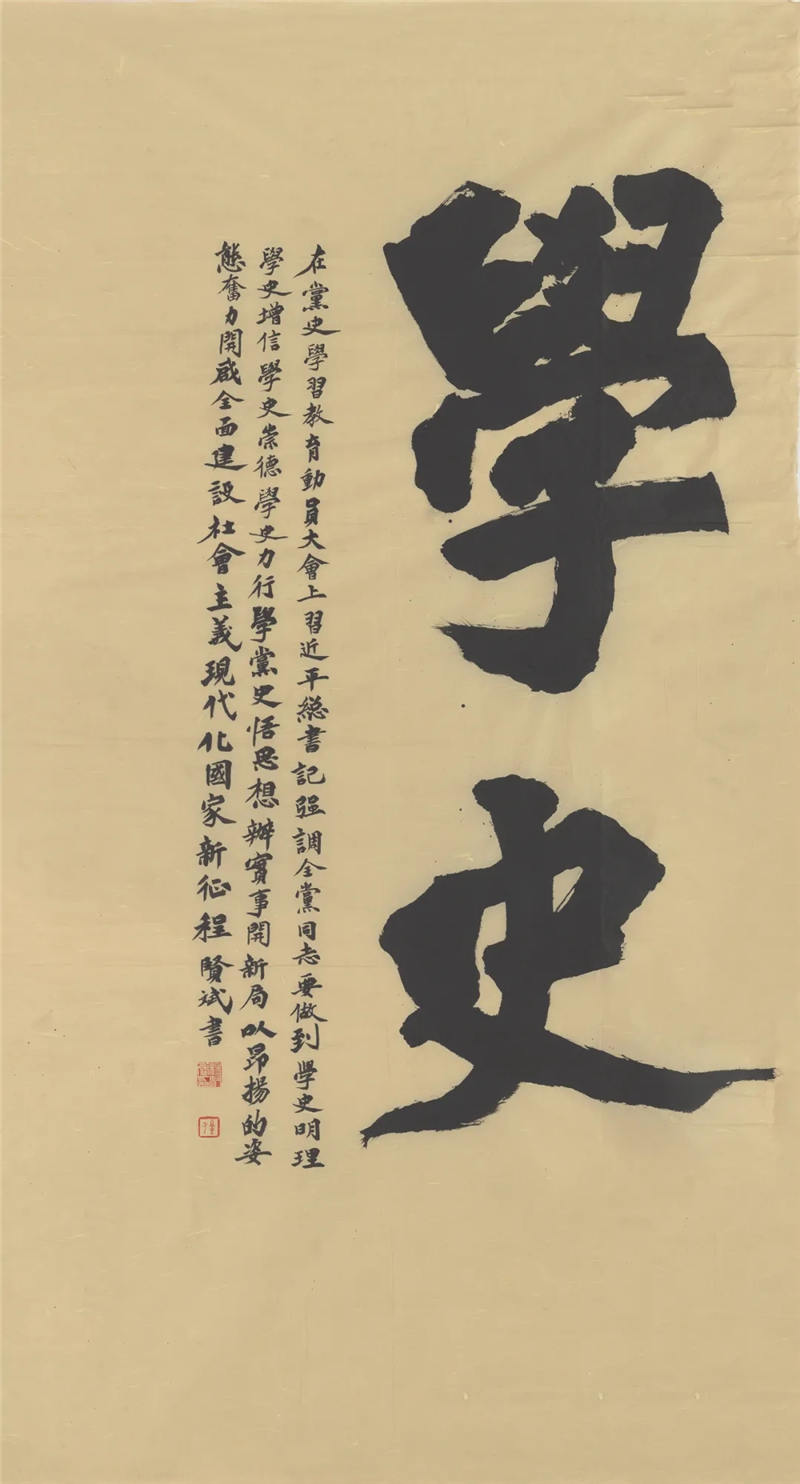 學史
在黨史學習教育動員大會上習近平緫書記强調全黨同志要做到學史明理
學史增信學史崇德學史力行學黨史悟思想辦實事開新局以昂揚的姿
態奮力開啟全面建設社會主義現代化國家新征程 賢斌書